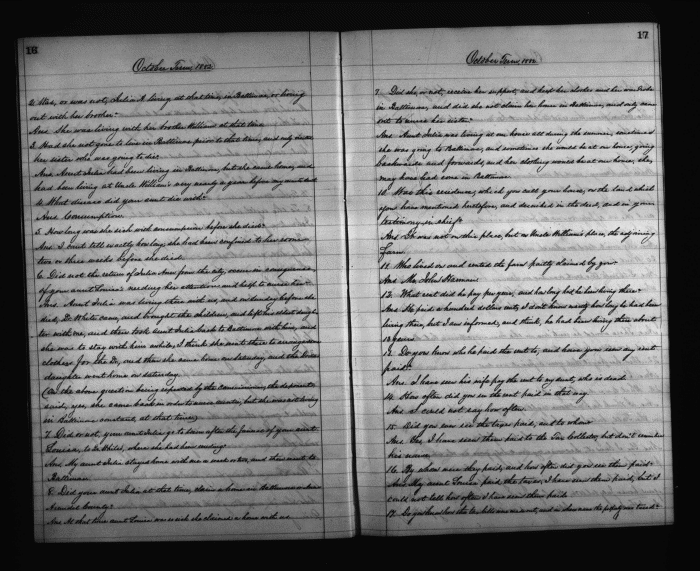 16
October Term 1882
2. Was, or was not, Julia A. living at that time, in Baltimore, or living
out with her brother?
Ans. She was living with her brother William at that time.
3. Had she not gone to live in Baltimore prior to that time, and only
her sister who was going to die?
Ans. Aunt Julia had been living in Baltimore, but she came home, and
had been living at Uncle William's very nearly a year before my aunt
4. What disease did your aunt die with?
Ans. Consumption.
5. How long was she sick with consumption before she died?
Ans. I cant tell exactly how long; she had been confined to her room
two or three weeks before she died.
6. Did not the return of Julia Ann from the city, occur in consequence
of your aunt Louisa's needing her attentions and help to nurse her?
Ans. Aunt Julia was living there with us, and on Sunday before she
died, Dr. White came, and brought the children, and left
with me, and then took aunt Julia back to Baltimore with him, and
she was to stay with his while, I think she went there to
clothes for and then she came home on Saturday, and the
daughter went home on Saturday.
(On the above question being repeated by the commissioner, the deponent
said, yes, she came back in order to nurse but she was not living
in Baltimore at that time)
7. Did or not, your aunt Julia go to town after the funeral of your aunt
Louisa, to Dr. White's, where she had been
Ans. My aunt Julia stayed home with me a week or two, and then went to
Baltimore.
8. Did your aunt Julia at that time, claim a home in Baltimore or Anne
Arundel County?
Ans. At that time aunt Louisa was sick she claimed a home with us
17
October Term 1882
9. Did she, or not, receive her support, and had her clothes and
in Baltimore, and did she not claim her home in Baltimore, and only came
out to nurse her sister?
Ans. Aunt Julia was living at our house all during the summer, sometimes
she was going to Baltimore, and sometimes she would be at our house, going
backwards and forwards, and her clothing would be at our house, she
may have had some in Baltimore.
10. Was this residence, which you call your house, on the land which
you have mentioned heretofore, and described in the deed, and in your
testimony in chief?
Ans. It was not on this place, but on Uncle William's place, the adjoining
farm.
11. Who lived on and rented the farm partly claimed by you?
Ans. Mr. John
12. What rent did he pay per year, and how long had he been living there?
Ans. He paid a hundred dollars rent, I don't know exactly how long he had been
living there, but I am informed, and think, he had been living there about
13 years
13. Do you know who he paid the rent to, and have you seen any rent
paid?
Ans. I have seen his wife pay the rent to my aunt, who is dead
14. How often did you see the rent paid in that way
Ans. I could not say how often.
15. Did you ever see the taxes paid, and to whom?
Ans. Yes, I have seen them paid to the Tax Collector, but don't remember
his name.
16. By whom were they paid, and how often did you see them paid?
Ans. My aunt Louisa paid the taxes, I have seen them paid, but I
could not tell how often I have seen them paid
17. Do you know how the tax bills were made out, and in whose name the property was taxed?